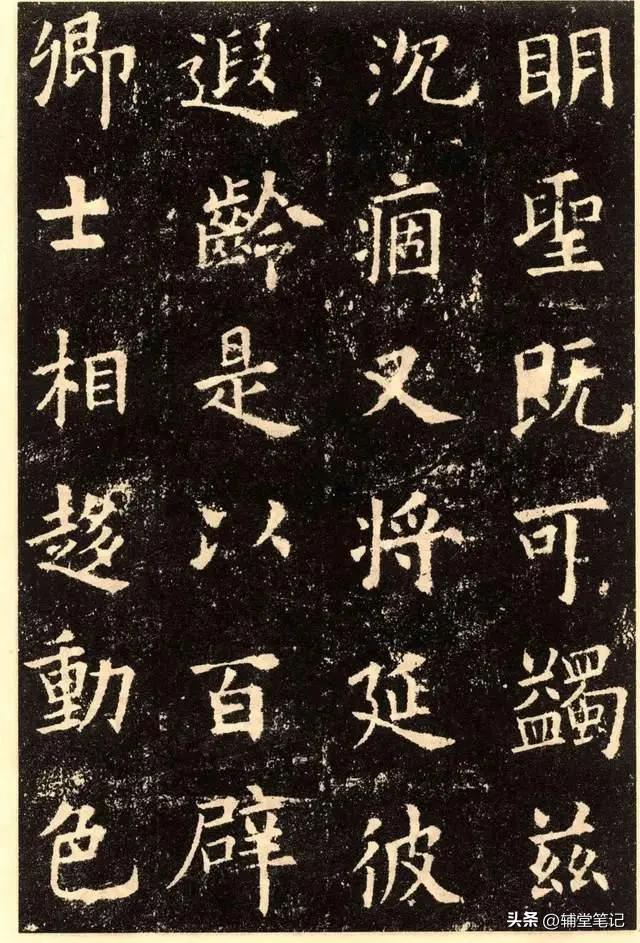 明聖既可蠲茲
沉痼又將延彼
遐齡是以百辟
卿士相趍動色
头条 @辅堂笔记